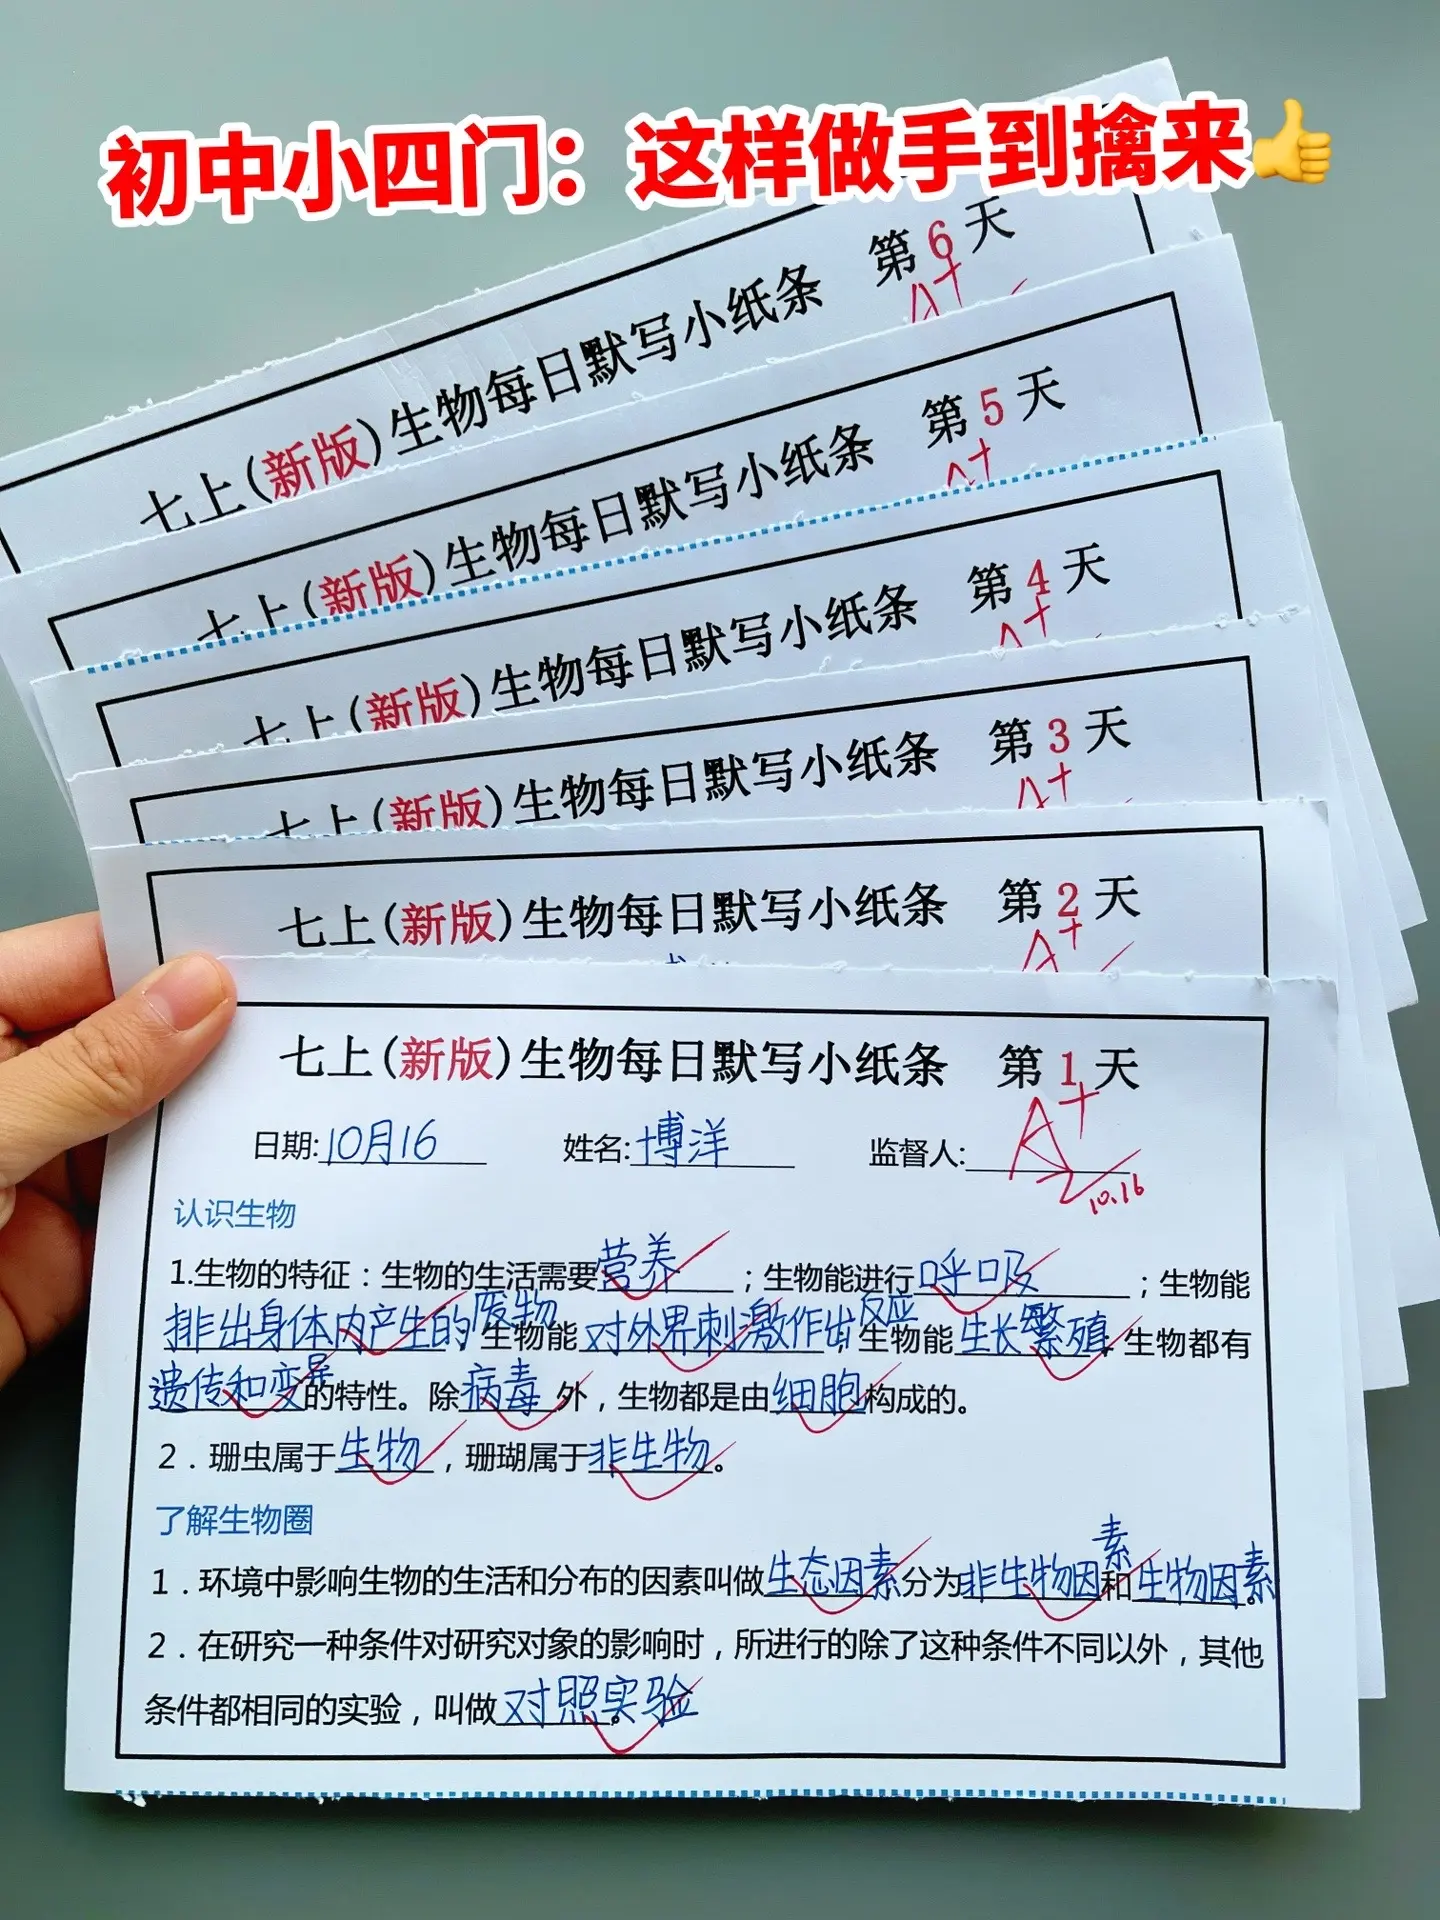 初中小四门：这样做手到擒来👍
七上(新版)生物每日默写小纸条 第6天
A+
七上(新版)生物每日默写小纸条 第5天
A+
七上(新版)生物每日默写小纸条 第4天
A+
七上(新版)生物每日默写小纸条 第3天
A+
七上(新版)生物每日默写小纸条 第2天
A+
七上(新版)生物每日默写小纸条 第1天
A+
日期:10月16 姓名:博洋 监督人:
10.16
认识生物
1.生物的特征：生物的生活需要营养；生物能进行呼吸；生物能
排出身体内产生的废物,生物能对外界刺激作出反应,生物能生长繁殖,生物都有
遗传和变异的特性。除病毒外，生物都是由细胞构成的。
2．珊虫属于生物，珊瑚属于非生物。
了解生物圈
1．环境中影响生物的生活和分布的因素叫做生态因素分为非生物因素和生物因素。
2．在研究一种条件对研究对象的影响时，所进行的除了这种条件不同以外，其他
条件都相同的实验，叫做对照实验。